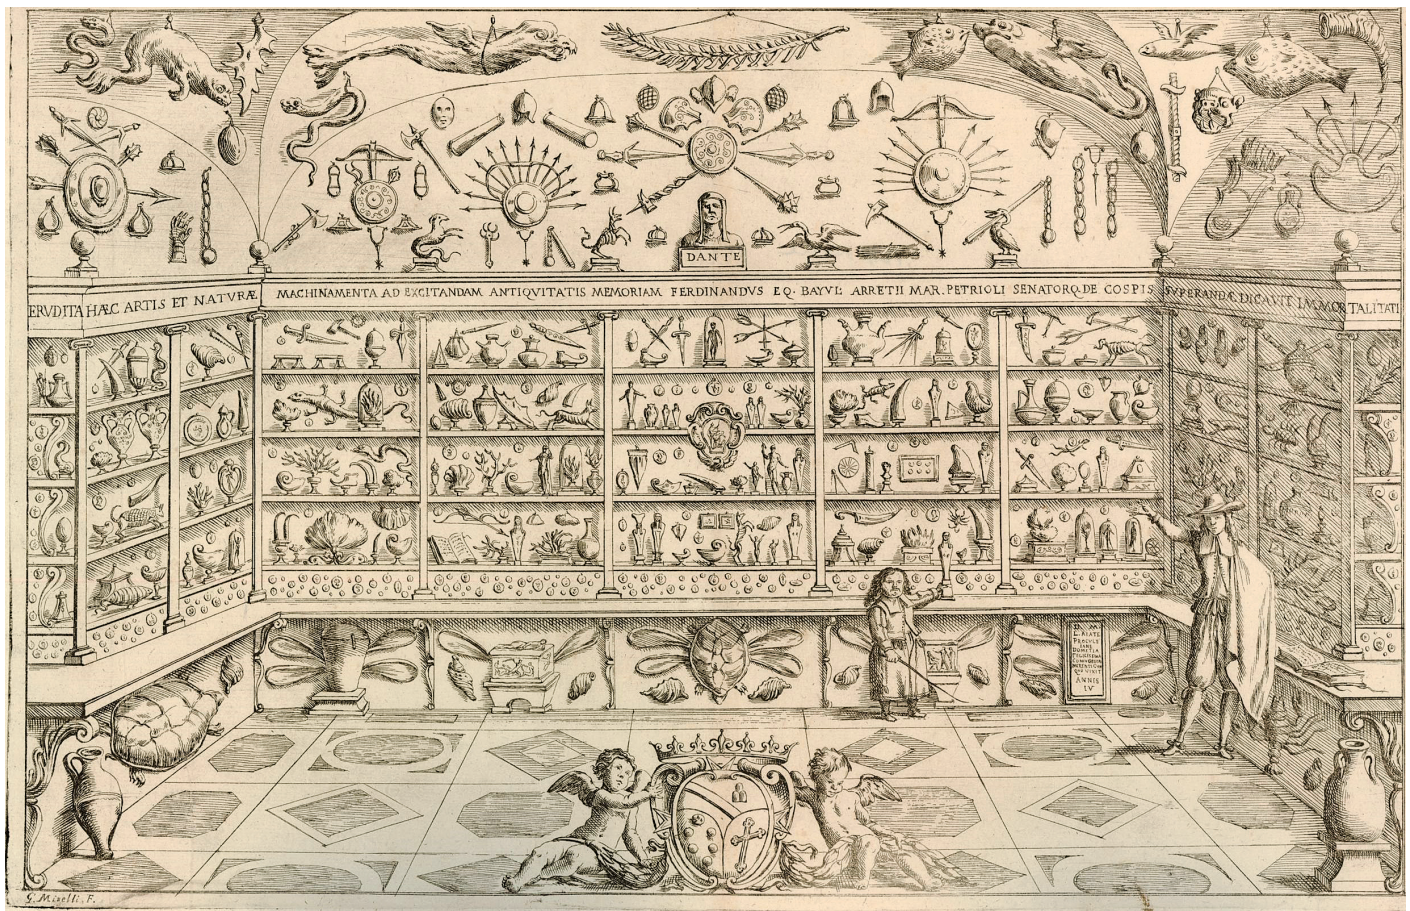 DANTE
ERVDITA HÆC ARTIS ET NATVRÆ MACHINAMENTA AD EXCITANDAM ANTIQVITATIS MEMORIAM FERDINANDVS EQ. BAYVL: ARRETII MAR. PETRIOLI SENATORQ. DE COSPIS SVPERANDÆ DICAVIT IMMORTALITATI
ANNIS
LV
G. Mitelli. F.